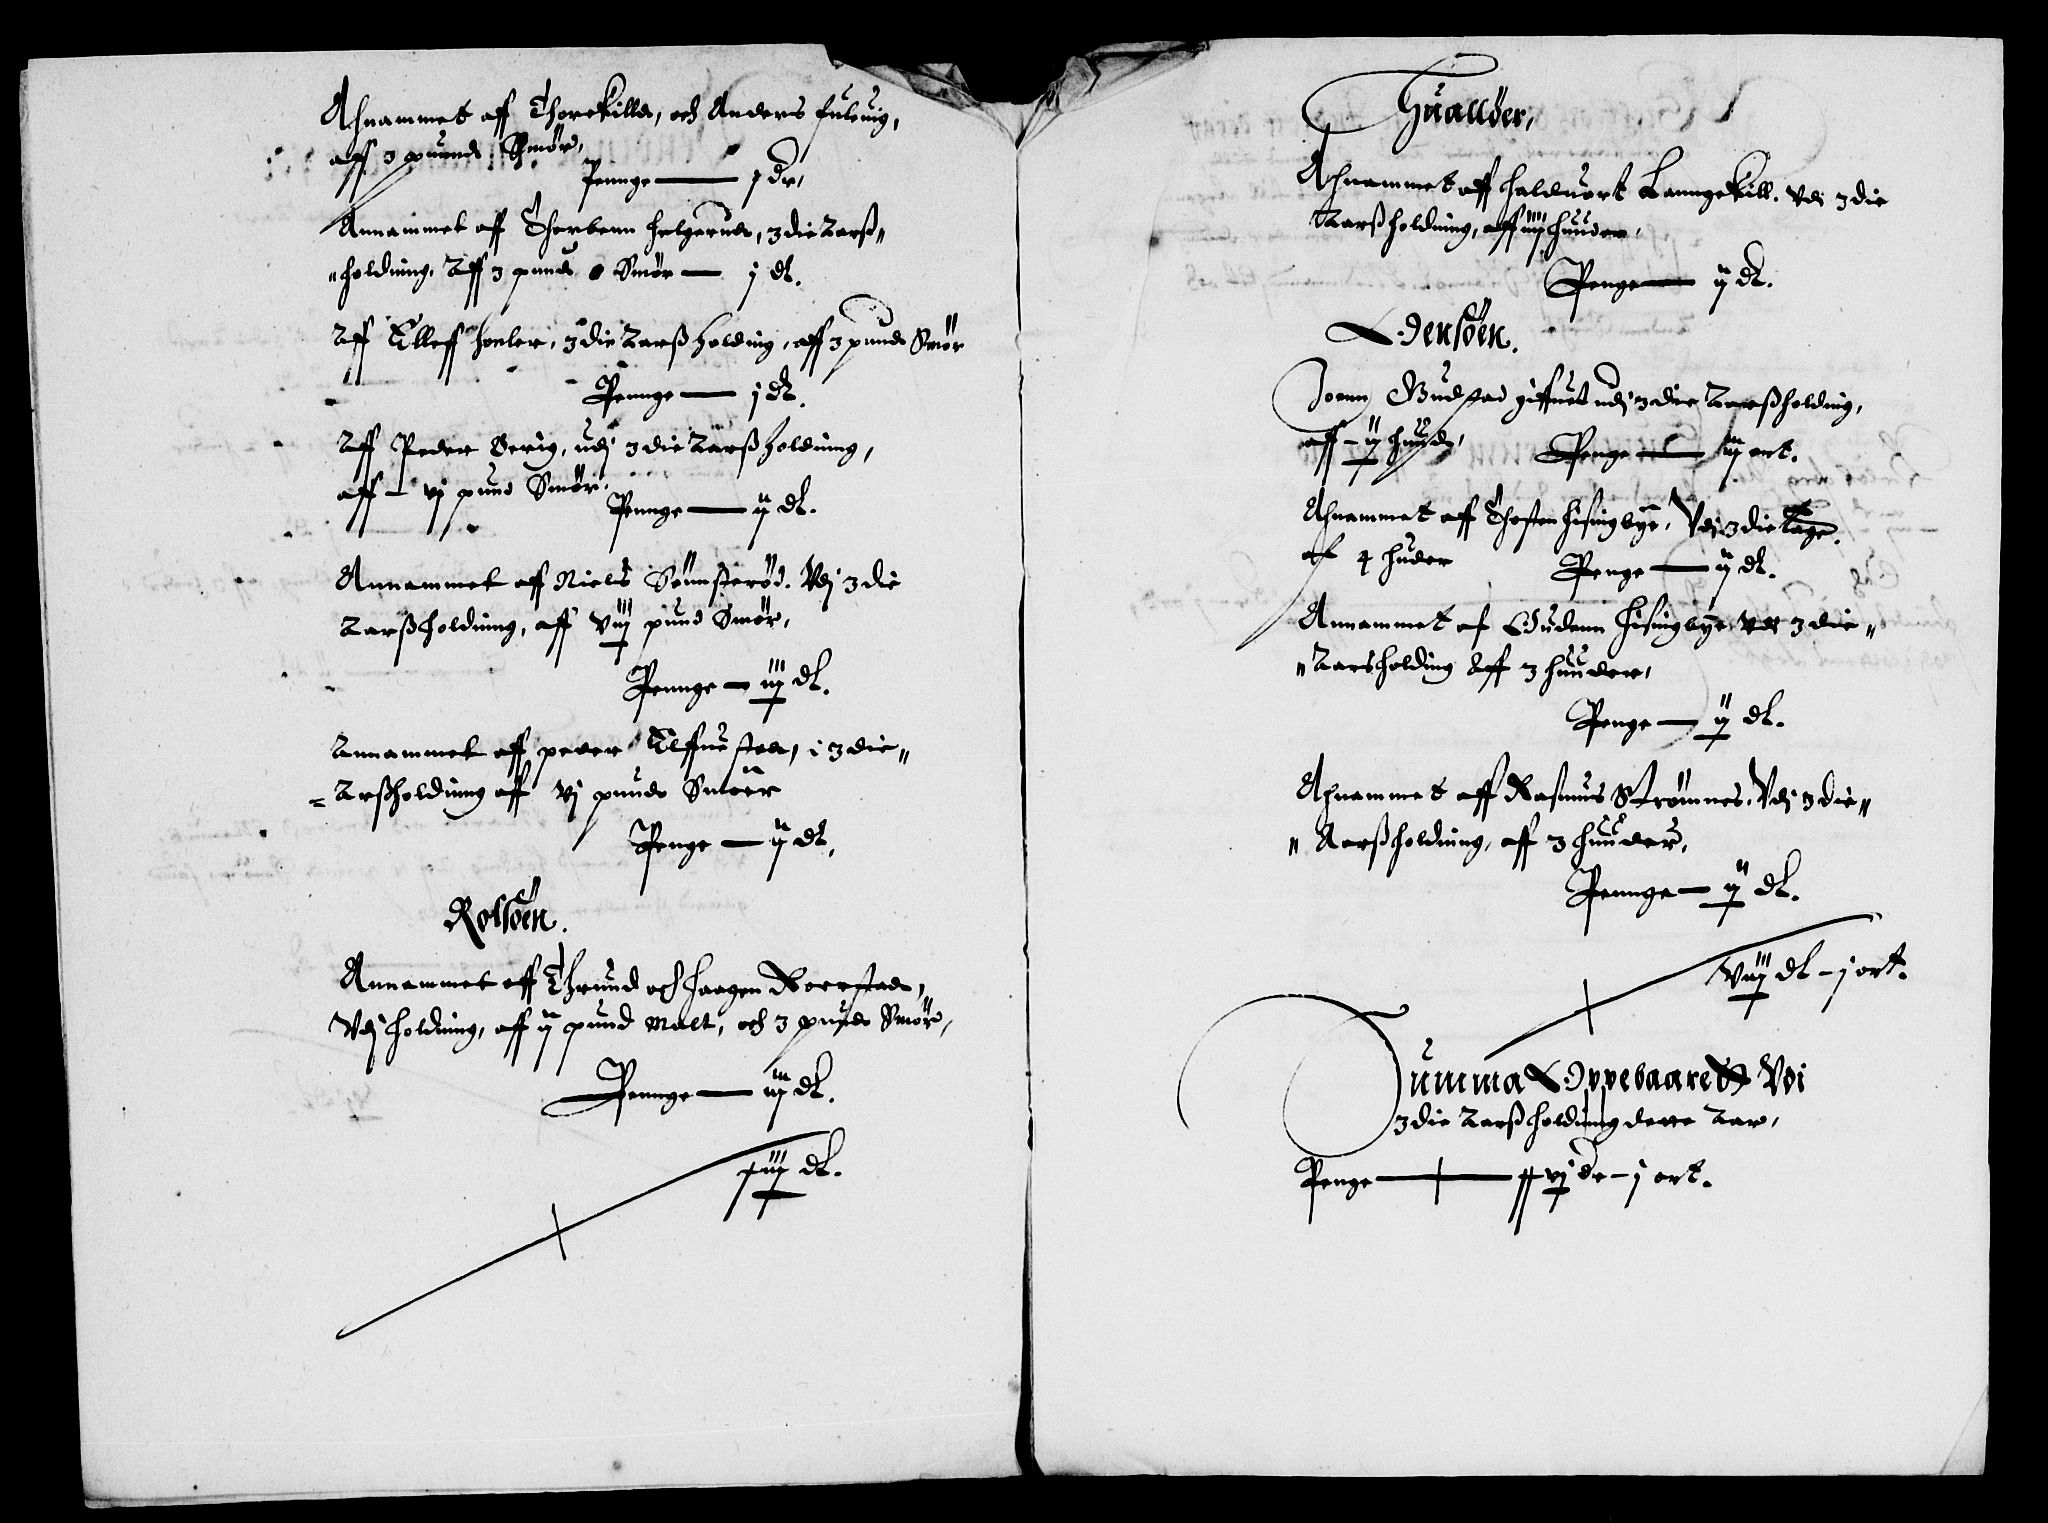 Annammet aff Thorekilld, och Anders fulvig,
aff 3 puund Smør,
Pennge — j dr,
Annammet aff Thorbenn helgerud, 3die Aarß„
„holding, Aff 3 pund Smør — j dl.
Aff Elleff hoeler, 3die Aarßholding, aff 3 pund Smør
Pennge — j dl.
Aff Peder Oerig, udj 3die Aarßholding,
aff — vj pund Smør.
Pennge — ij dl.
Annammet aff Niels Sønsterød. Vdj 3die
Aarßholding, aff viij pund Smør,
Pennge — iiij dl.
Annammet aff peder Elffuestad, i 3die„
= Arßholding aff vj punds Smøer
Penge — ij dl,
Rolsöen.
Annammet aff Thrund och haagen Roerstad,
Vdj holding, aff ij pund Malt, och 3 punds Smør,
Pennge — iij dl.
Huallöer,
Annammet aff haluort Banngekill. Vdi 3die
Aarßholding, aff iiij huuder,
Penge — ij dl.
Odensöen.
Joenn Gudstad giffuet udj 3die Aarßholding,
aff — ij huude,
Penge — iij ort.
Annammet aff Thosten hisingbye, Vdj 3die tage
af 4 huder Penge — ij dl.
Annammet af Gudenn hisingbye vdi 3die„
„Aarsholding Aff 3 huuder,
Penge — ij dl.
Annammet aff Rasmus Strømnes. Vdj 3die„
„ Aarßholding, aff 3 huuder,
Pennge — ij dl.
viij dl — j ort.
Summa Oppebaarett Vdi
3die Aarßholding dette Aar,
Penge — vj dr — j ort.